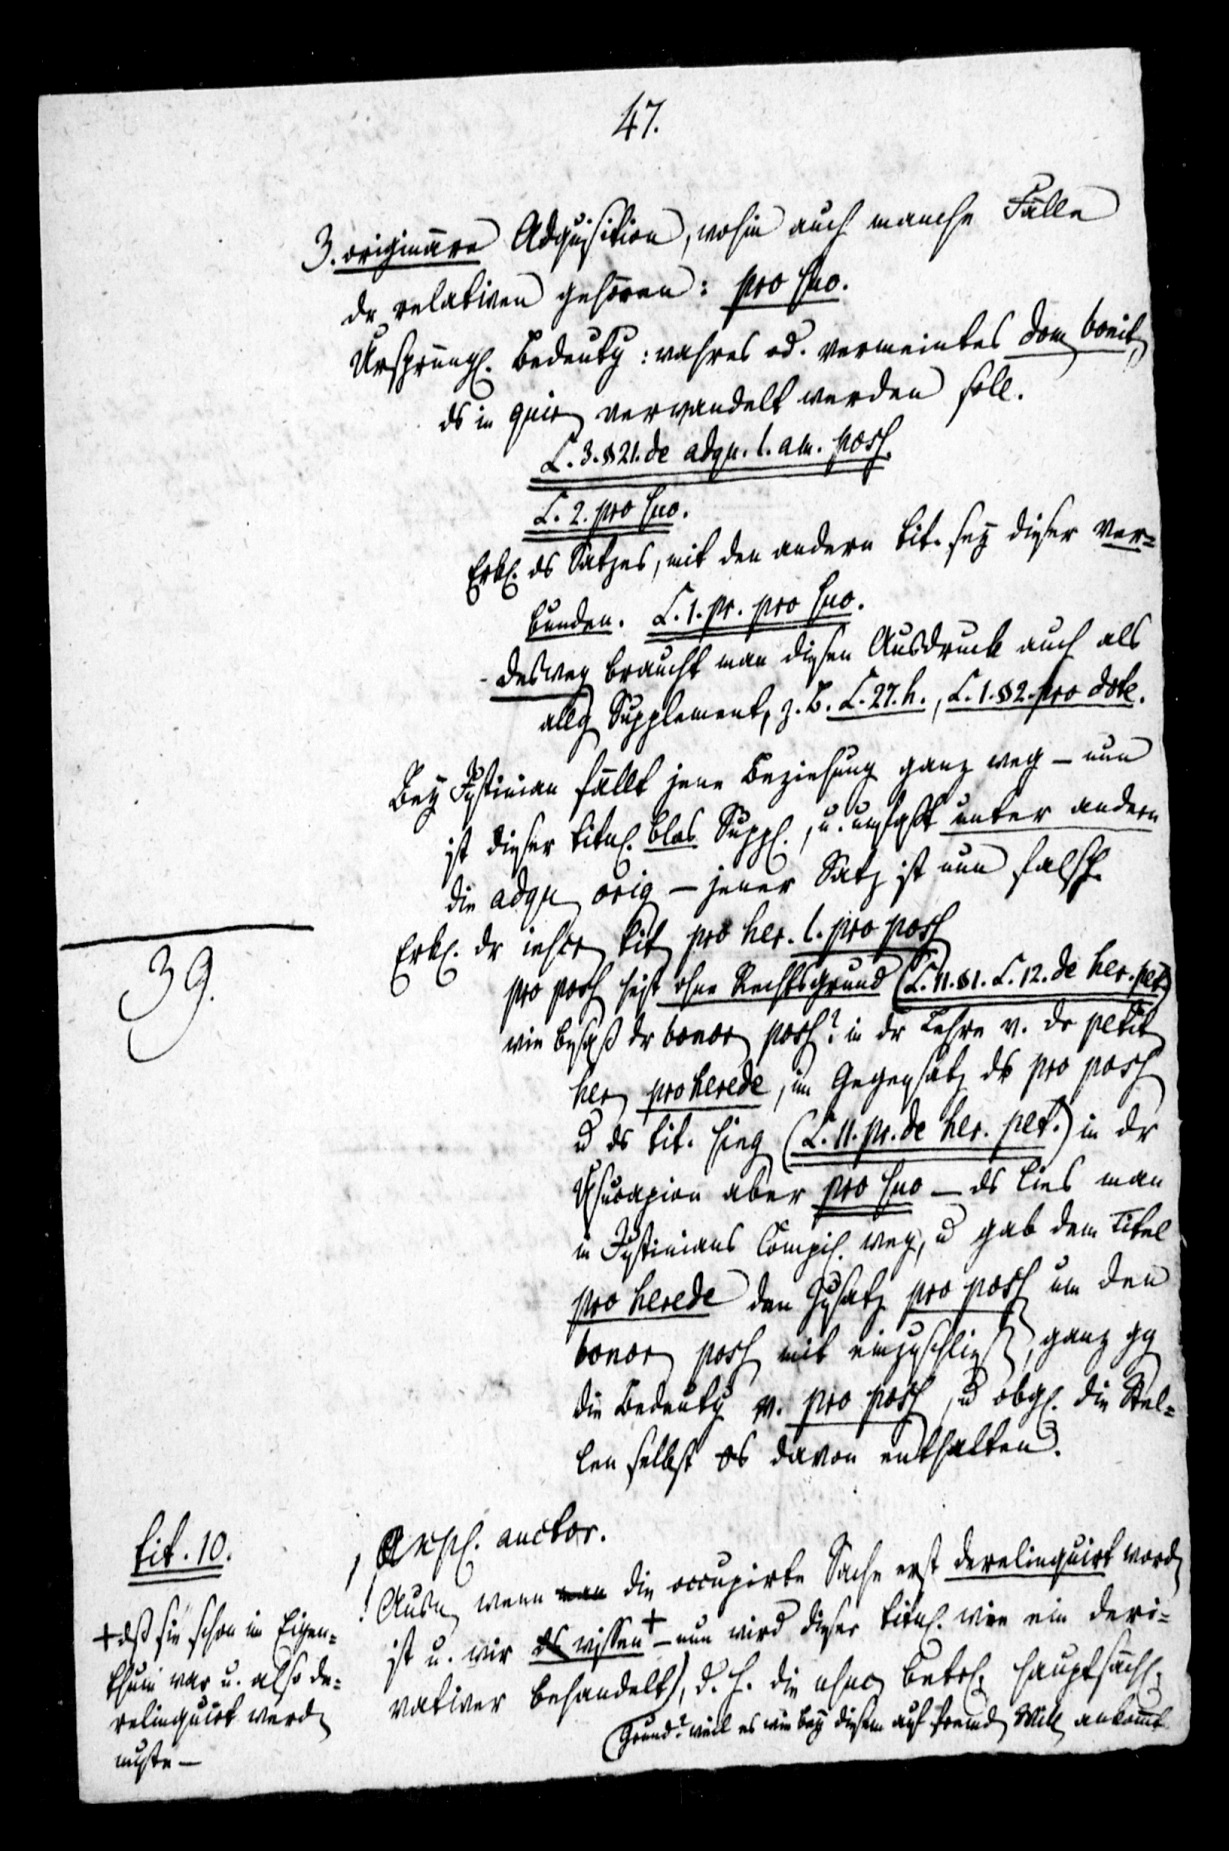 47.
3. originäre Adquisition, wohin auch manche Fälle
dr relativen gehören: pro suo.
Ursprüngl. Bedeutg: wahres od. vermeintes dom bonit,
ds in quir verwandelt werden soll.
L. 3. §21. de adqu. l. am. poss.
L. 2. pro suo.
Erkl. ds Satzes, mit den andern tit. sey dieser ver=
bunden. L. 1. pr. pro suo.
- desweg braucht man diesen Ausdruck auch als
allg Supplement, z. B. L. 27. h., L. 1. §2. pro dote.
Bey Justinian fällt jene Beziehung ganz weg — nun
ist dieser titul. blos Suppl., u. umfaßt unter andern
die adqu orig — jener Satz ist nun falsch.
39.
Erkl. dr tit pro her. l. pro poss
pro poss heist ohne Rechtsgrund (L. 11. §1. L. 12. de her. pet.)
wie besaß dr bonor poss? in dr Lehre v. dr petit
her pro herede, im Gegensatz ds pro poss
u ds tit. sing (L. 11. pr. de her. pet.) in dr
Usucapion aber pro suo — ds lies man
in Justinians Compil. weg, u gab dem Titel
pro herede den Zusatz pro poss um den
bonor poss mit einzuschließ, ganz gg
die Bedeutg v. pro poss, u obgl. die Stel=
len selbst davon enthalten.
tit. 10.
auctor.
Ausn wenn man die occupirte Sache erst derelinquirt word
ist u. wir ds wissen + — nun wird dieser titul. wie ein deri=
vativer behandelt, d. h. die usuc betr. hauptsächl.
(Grund? weil es wie bey diesem auf fremd Will ankommt
+ daß sie schon im Eigen=
thum war u. also de=
relinquirt werd
muste —